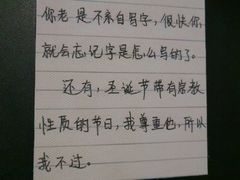 你老是不亲自写字，很快你，
就会忘记字是怎么写的了。
还有，圣诞节带有宗教
性质的节日，我尊重他，所以
我不过。